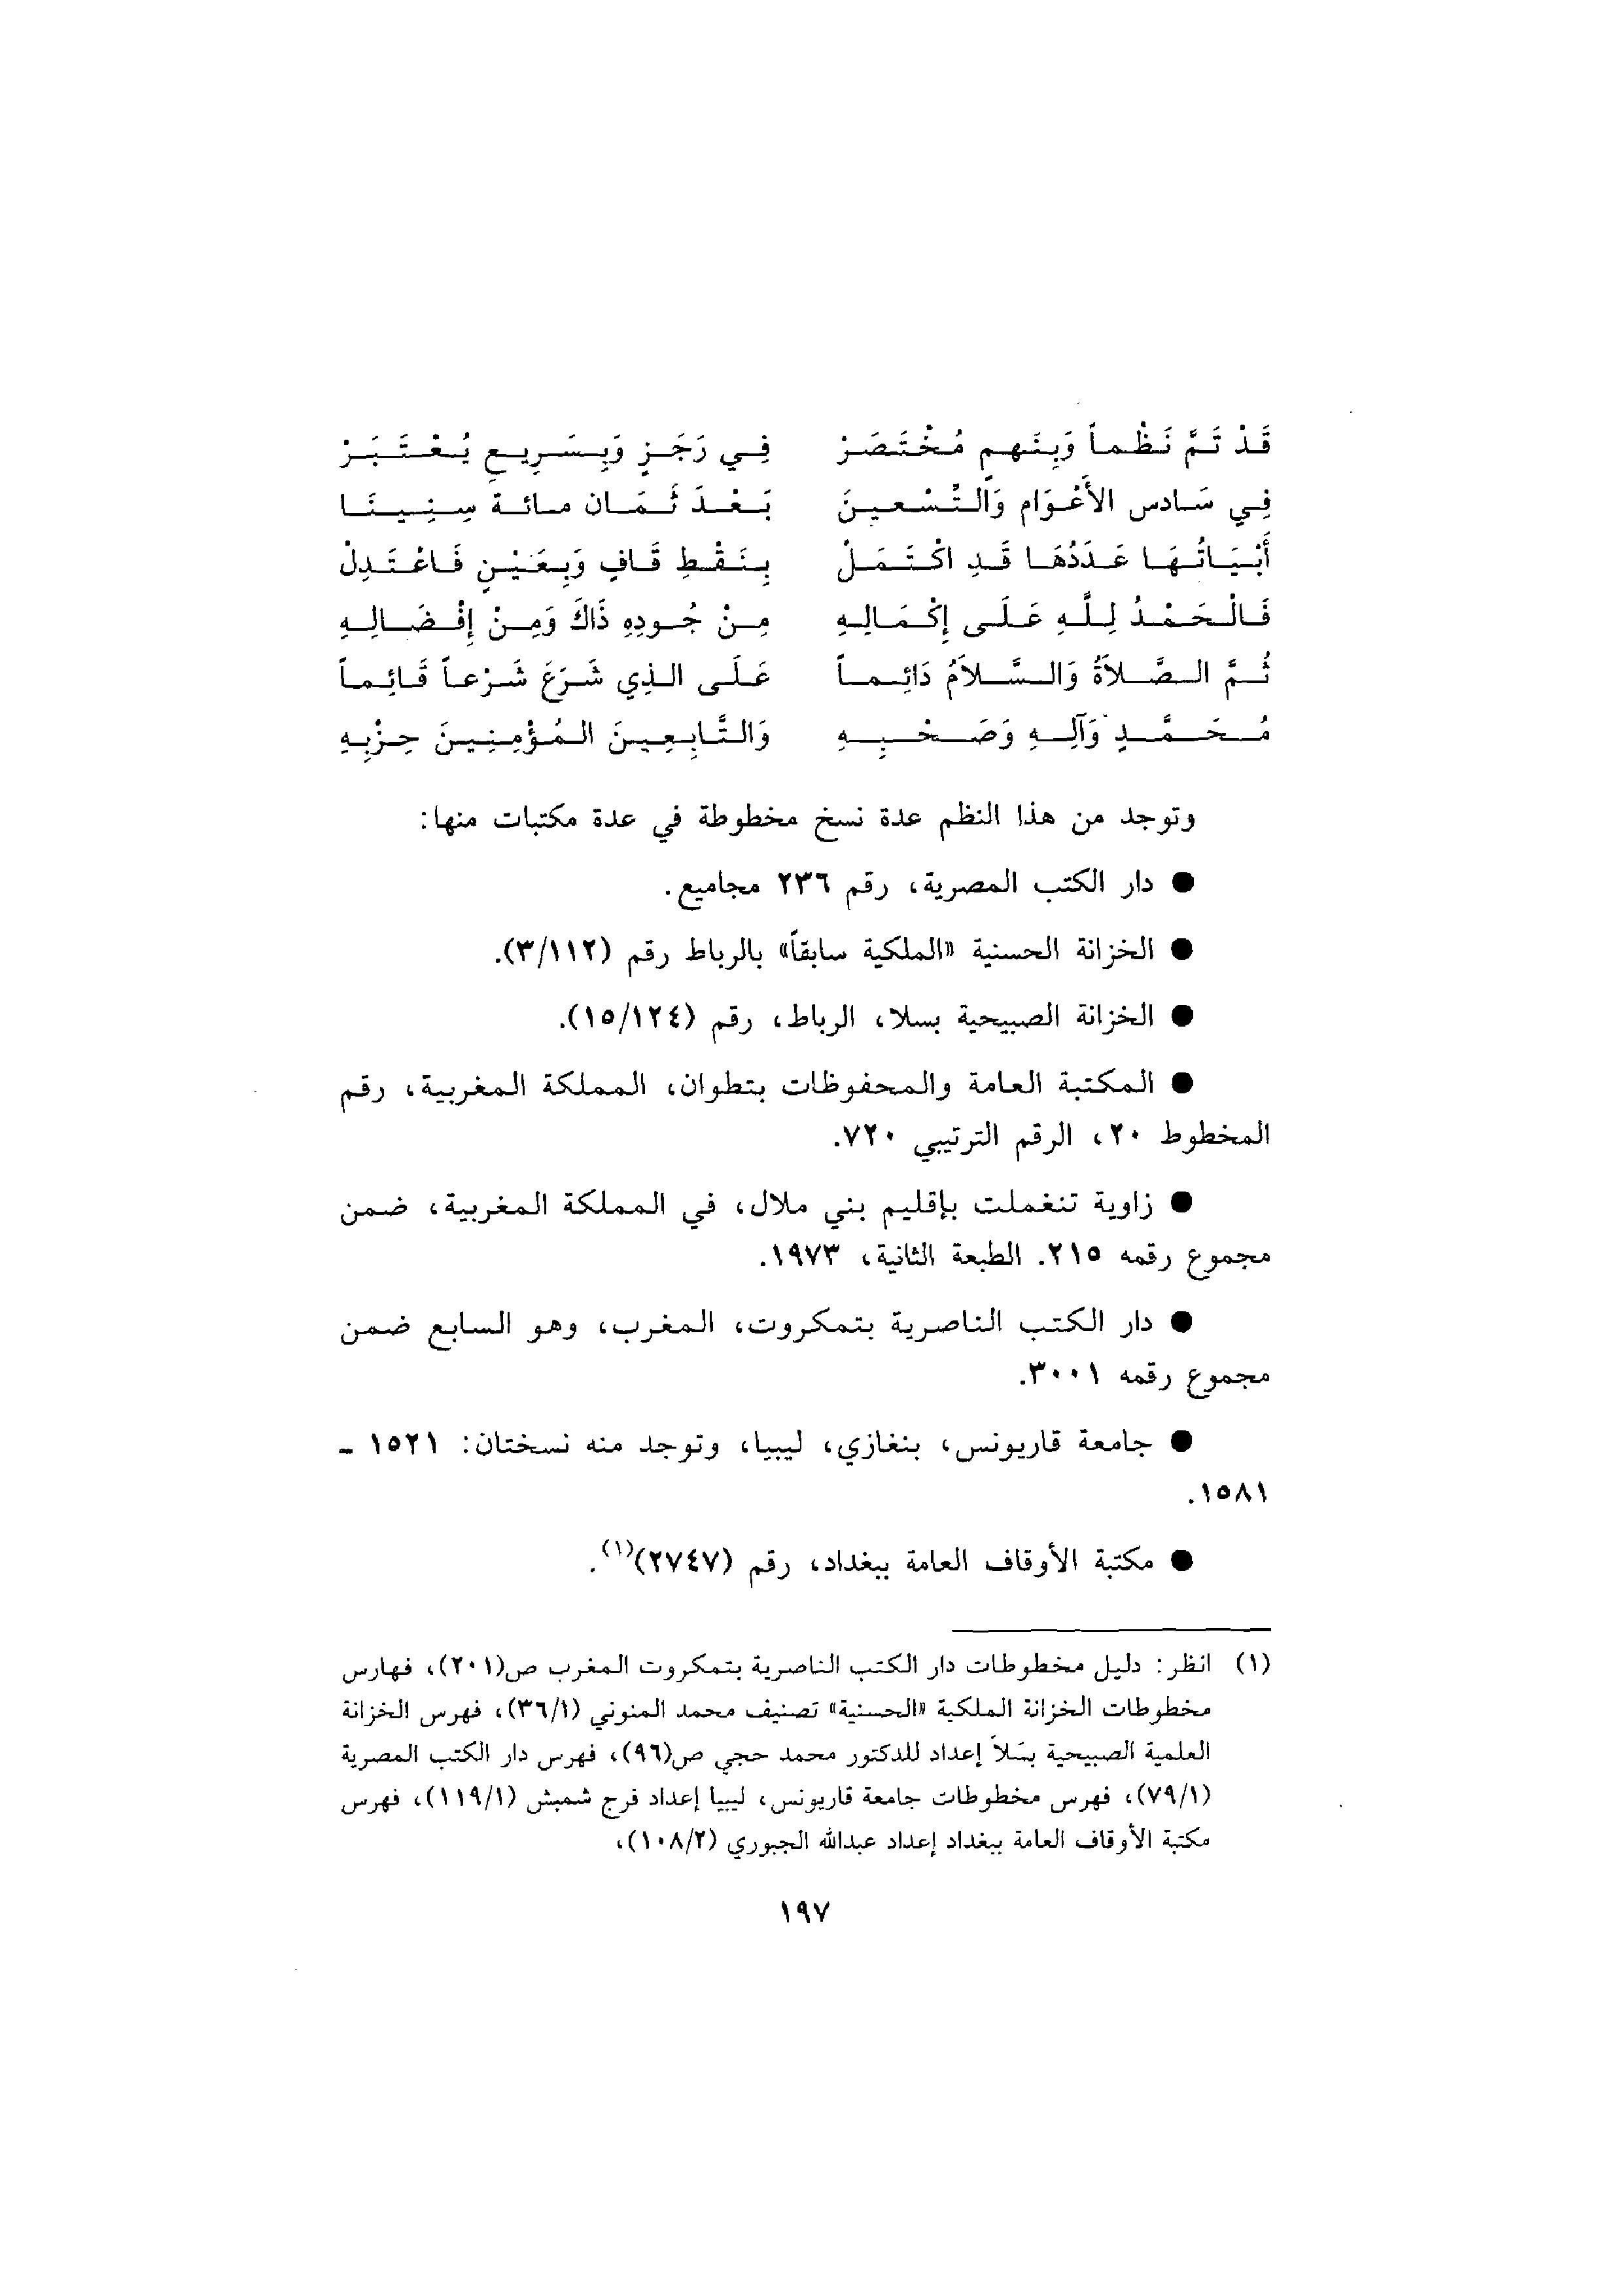 قَدْ تَمَّ نَظْماً وَبِنَهمٍ مُخْتَصَرْ فِي رَجَزٍ وَبِسَرِيعٍ يُعْتَبَرْ
فِي سَادس الأَعْوَام وَالتِّسْعينَ بَعْدَ ثَمَان مائة سِنِينَا
أَبْيَاتُهَا عَدَدُهَا قَدِ اكْتَمَلْ بِنَقْطِ قَافٍ وَبِعَيْنٍ فَاعْتَدِلْ
فَالْحَمْدُ لِلَّهِ عَلَى إِكْمَالِهِ مِنْ جُودِهِ ذَاكَ وَمِنْ إِفْضَالِهِ
ثُمَّ الصَّلاَةُ وَالسَّلاَمُ دَائِماً عَلَى الذِي شَرَعَ شَرْعاً قَائِماً
مُحَمَّدٍ وَآلِهِ وَصَحْبِهِ وَالتَّابِعِينَ المُؤْمِنِينَ حِزْبِهِ
وتوجد من هذا النظم عدة نسخ مخطوطة في عدة مكتبات منها:
● دار الكتب المصرية، رقم ٢٣٦ مجاميع.
● الخزانة الحسنية «الملكية سابقاً» بالرباط رقم (٣/١١٢).
● الخزانة الصبيحية بسلا، الرباط، رقم (١٥/١٢٤).
● المكتبة العامة والمحفوظات بتطوان، المملكة المغربية، رقم
المخطوط ٢٠، الرقم الترتيبي ٧٢٠.
● زاوية تنغملت بإقليم بني ملال، في المملكة المغربية، ضمن
مجموع رقمه ٢١٥. الطبعة الثانية، ١٩٧٣.
● دار الكتب الناصرية بتمكروت، المغرب، وهو السابع ضمن
مجموع رقمه ٣٠٠١.
● جامعة قاريونس، بنغازي، ليبيا، وتوجد منه نسختان: ١٥٢١ ـ
١٥٨١.
● مكتبة الأوقاف العامة ببغداد، رقم (٢٧٤٧)(١).
(١) انظر: دليل مخطوطات دار الكتب الناصرية بتمكروت المغرب ص(٢٠١)، فهارس
مخطوطات الخزانة الملكية «الحسنية» تصنيف محمد المنوني (٣٦/١)، فهرس الخزانة
العلمية الصبيحية بسَلاَ إعداد للدكتور محمد حجي ص(٩٦)، فهرس دار الكتب المصرية
(٧٩/١)، فهرس مخطوطات جامعة قاريونس، ليبيا إعداد فرج شمبش (١١٩/١)، فهرس
مكتبة الأوقاف العامة ببغداد إعداد عبدالله الجبوري (١٠٨/٢)،
١٩٧